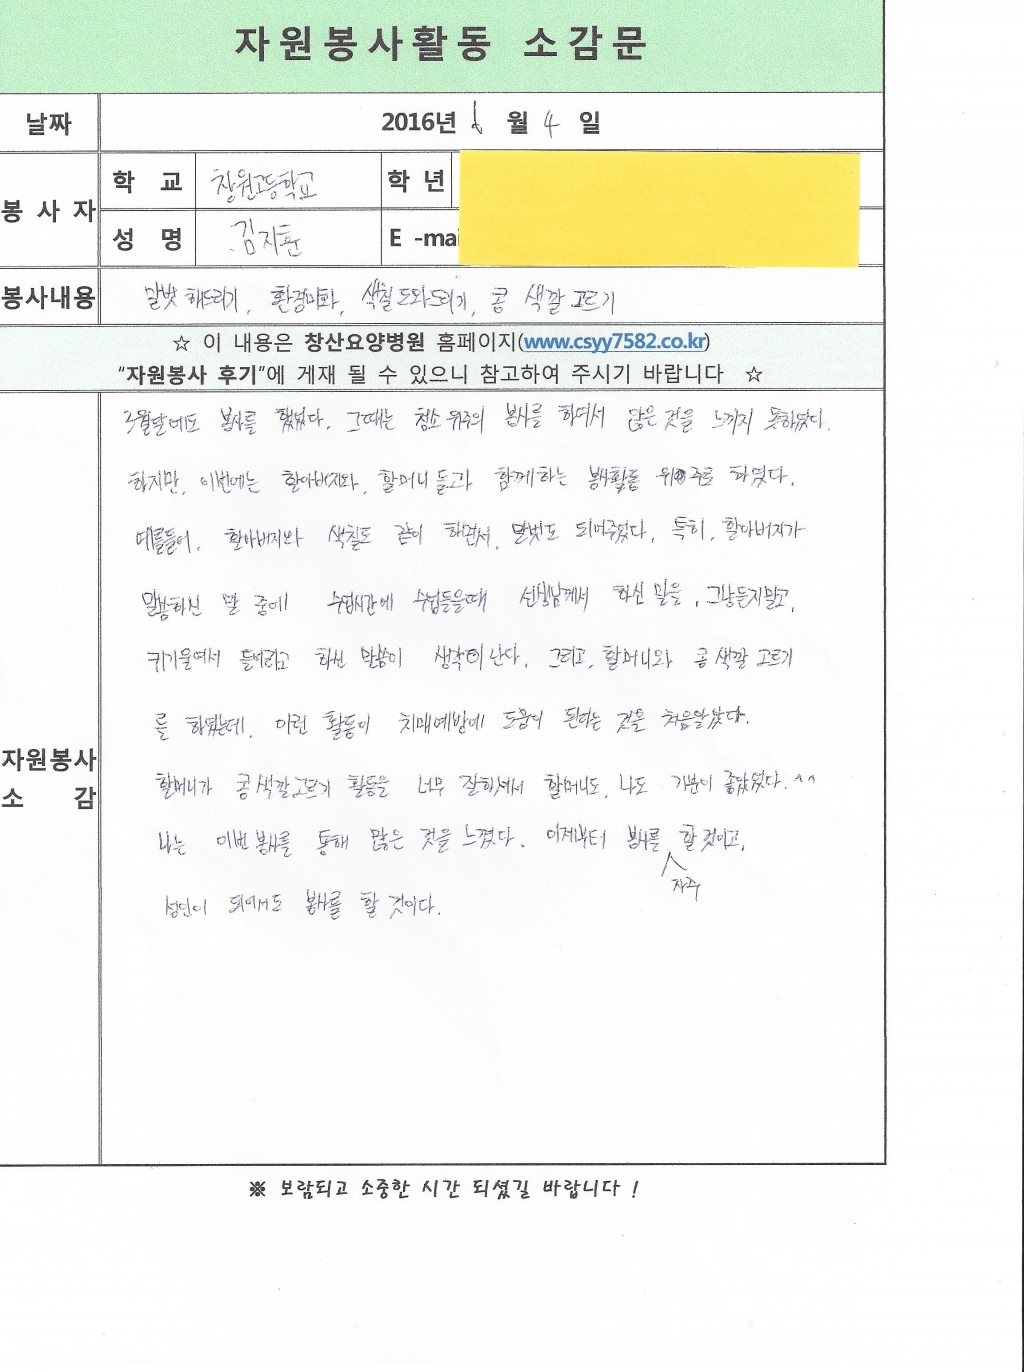 자원봉사활동 소감문
날짜 2016년 6 월 4 일
봉사자 학 교 창원고등학교 학 년
성 명 김지훈 E -mai
봉사내용 말벗 해드리기, 환경미화, 색칠 도와드리기, 콩 색깔 고르기
☆ 이 내용은 창산요양병원 홈페이지(www.csyy7582.co.kr)
“자원봉사 후기”에 게재 될 수 있으니 참고하여 주시기 바랍니다 ☆
자원봉사 소 감
3월달에도 봉사를 했었다. 그때는 청소 위주의 봉사를 하여서 많은 것을 느끼지 못하였다.
하지만, 이번에는 할아버지와, 할머니들과 함께하는 봉사활동 위주로 하였다.
예를들어, 할아버지와 색칠도 같이 하면서, 말벗도 되어주었다. 특히, 할아버지가
말씀하신 말 중에 수업시간에 수업들을때 선생님께서 하신 말을, 그냥듣지말고,
귀기울여서 들어라고 하신 말씀이 생각이 난다. 그리고, 할머니와 콩 색깔 고르기
를 하였는데, 이런 활동이 치매예방에 도움이 된다는 것을 처음알았다.
할머니가 콩 색깔고르기 활동을 너무 잘하셔서 할머니도, 나도 기분이 좋았었다. ^^
나는 이번 봉사를 통해 많은 것을 느꼈다. 이제부터 봉사를 자주 할 것이고,
성인이 되어서도 봉사를 할 것이다.
※ 보람되고 소중한 시간 되셨길 바랍니다 !